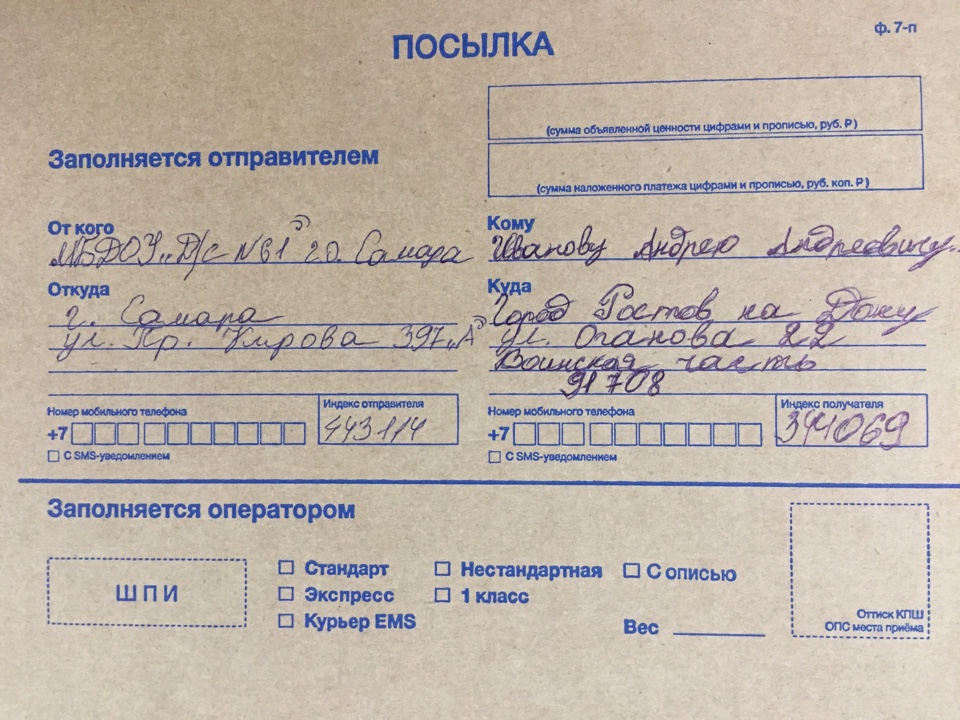 ф. 7-п
ПОСЫЛКА
(сумма объявленной ценности цифрами и прописью, руб. ₽)
Заполняется отправителем
(сумма наложенного платежа цифрами и прописью, руб. коп. ₽)
От кого
МБДОУ „Д/с №61" г.о. Самара
Откуда
г. Самара
ул. Пр. Кирова 397„А"
Номер мобильного телефона
Индекс отправителя
+7
443114
С SMS-уведомлением
Кому
Иванову Андрею Андреевичу.
Куда
Город Ростов на Дону
ул. Оганова 22
Воинская часть
91708
Номер мобильного телефона
Индекс получателя
+7
344069
С SMS-уведомлением
Заполняется оператором
ШПИ
Стандарт
Экспресс
Курьер EMS
Нестандартная
1 класс
С описью
Вес
Оттиск КПШ
ОПС места приёма